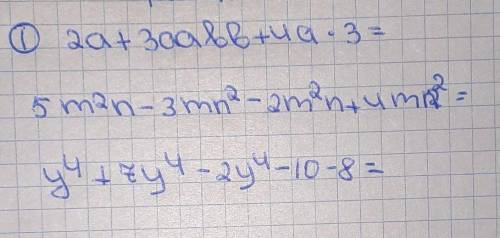 ① 2a + 3aabb + 4a · 3 =
5m2n - 3mn² - 2m²n + 4mn² =
y⁴ + 7y⁴ - 2y⁴ - 10 - 8 =